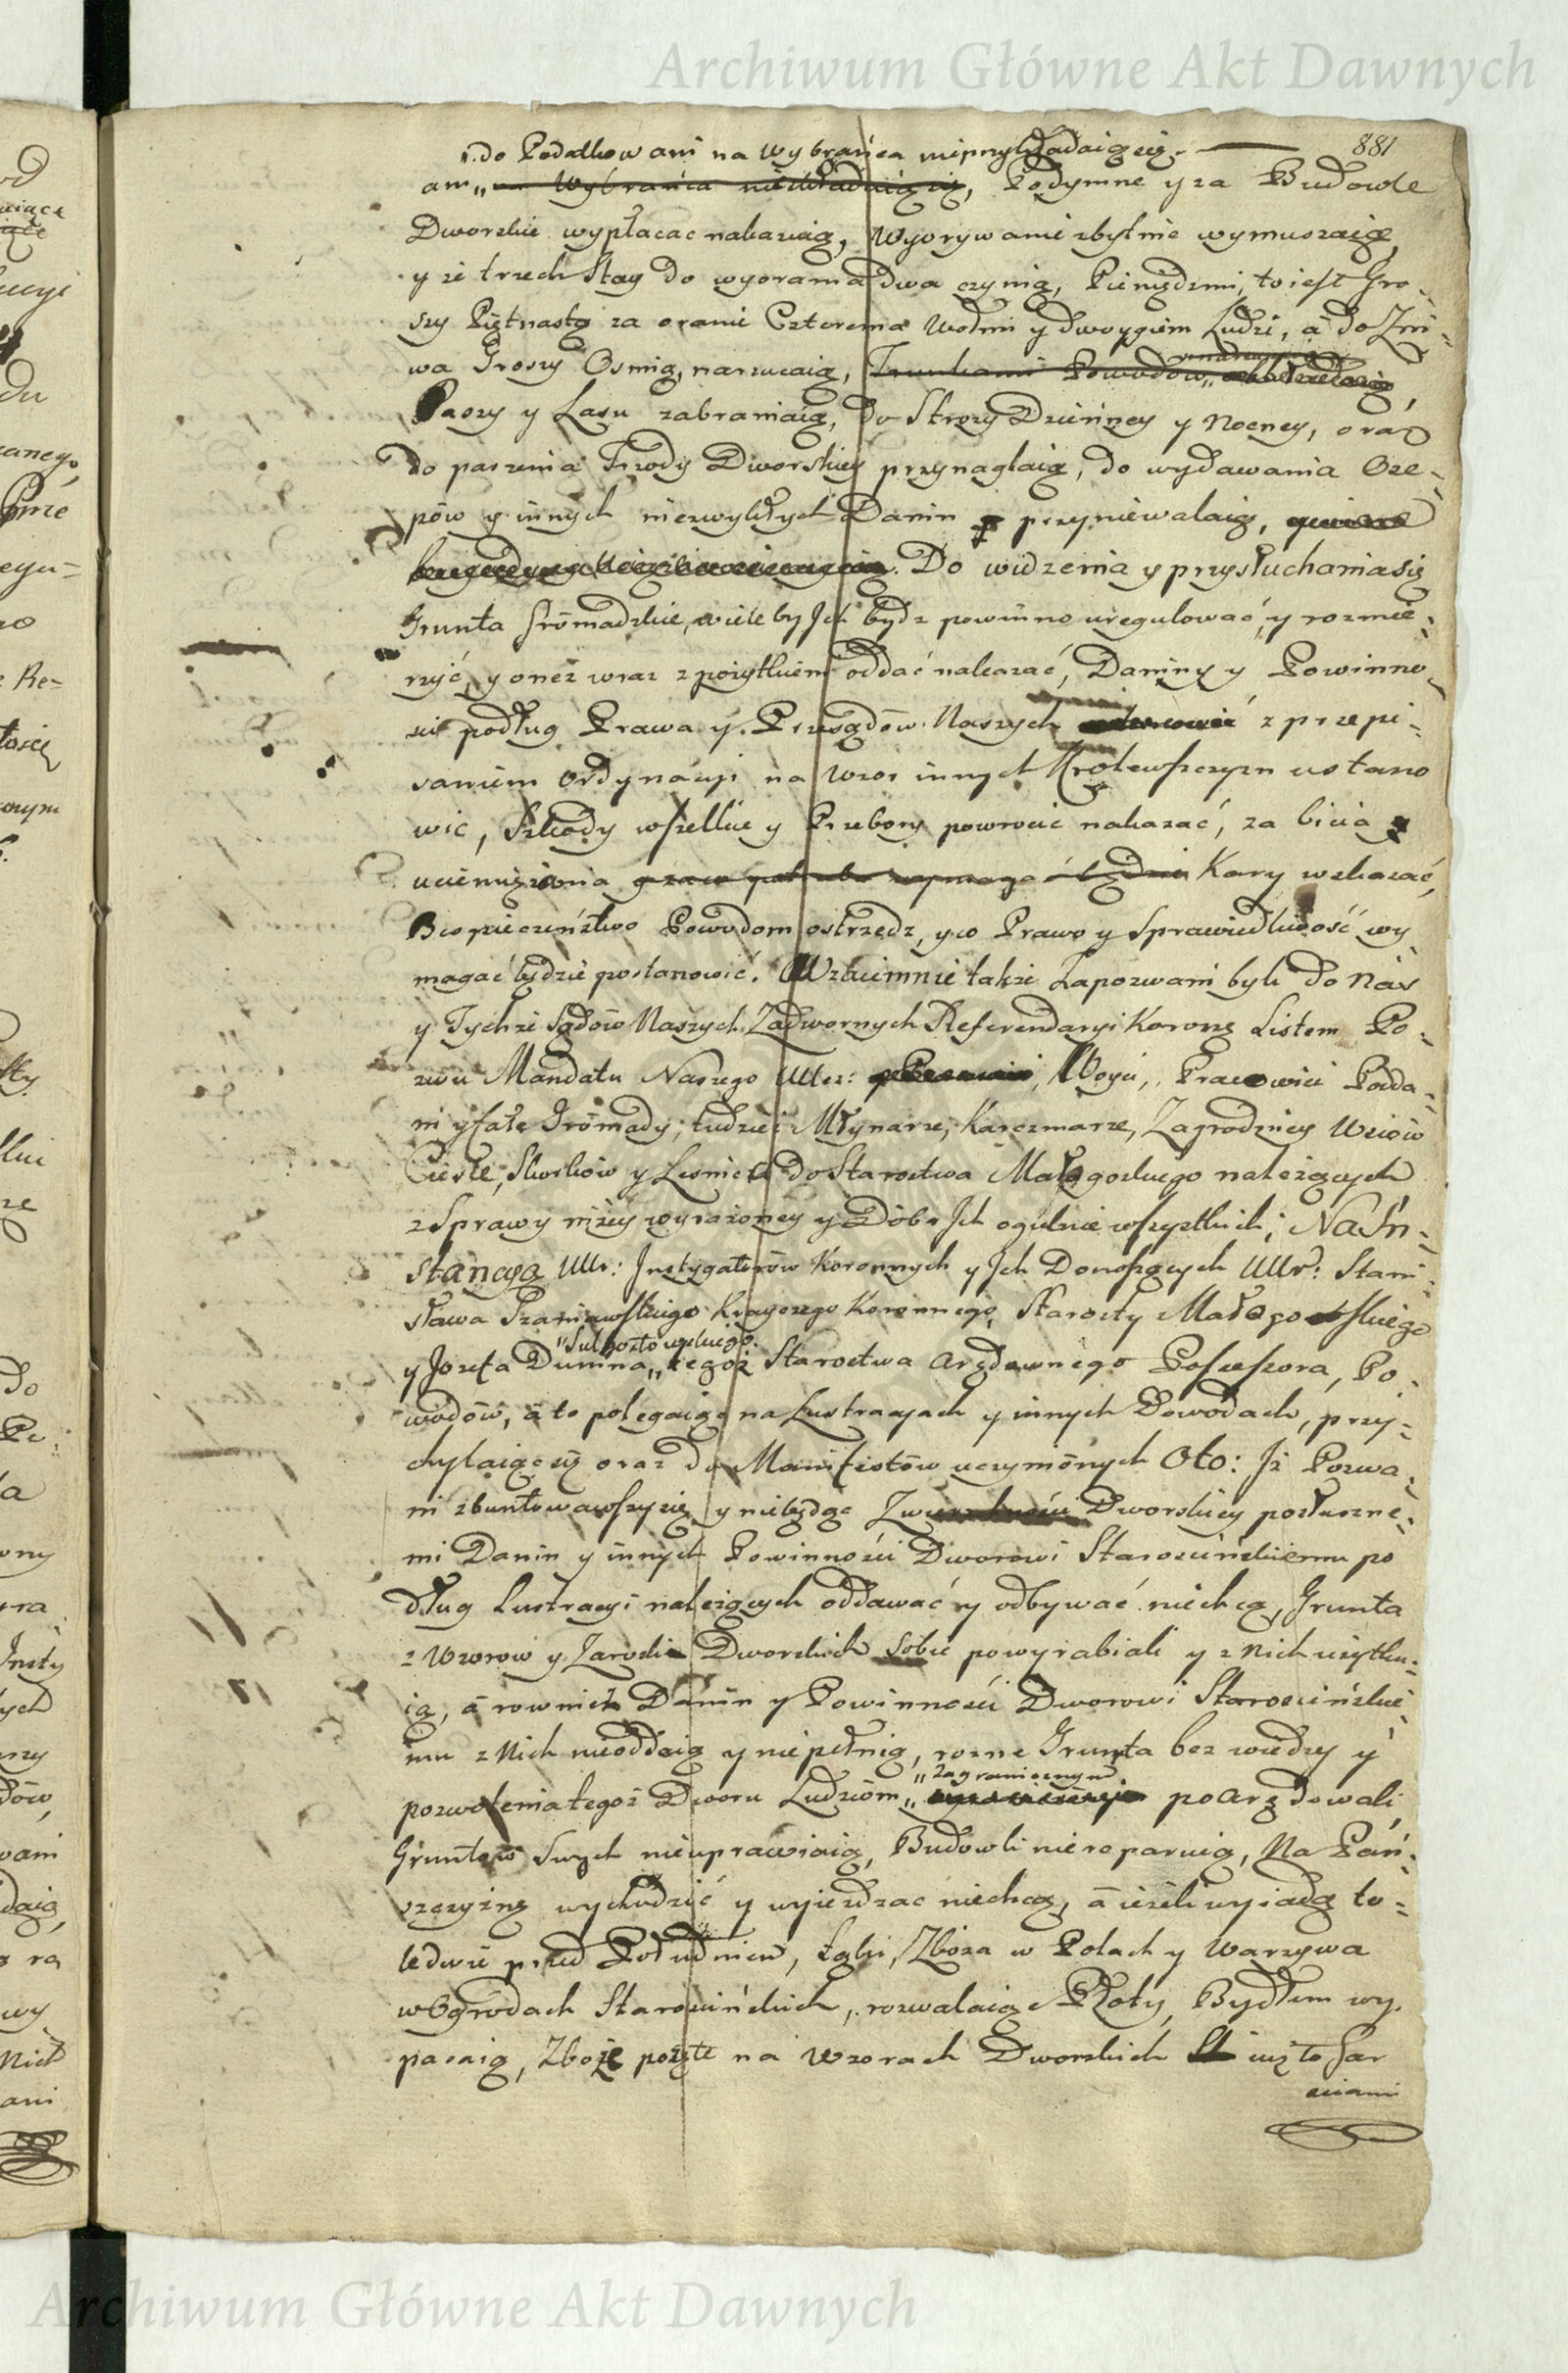 Archiwum Główne Akt Dawnych
881
"do Podatkow ani na Wybrańca nieprzykładaiąc się
ani" na Wybrańca nieskładaiąc się, Podymne y za Budowle
Dworskie wypłacac nakazuią, Wyorywanie zbytnie wymuszaią,
y ze trzech Stay do wyorania dwa czynią, Pieniędzmi, to iest Gro-
szy Piętnastą za oranie Czterema Wołmi y dwoygiem Ludzi, a do Żni-
wa Groszy Osmią, narzucaią, Trunkami Powodow
Paszy y Lasu zabraniaią, do Strozy Dzienney y Nocney, oraz
do paszenia Trzody Dworskiey przynaglaią, do wydawania Osе-
pów y innych niezwykłych Danin przyniewalaią,
Do widzenia y przysłuchania się
Grunta Gromadzkie, wiele by Jch bydz powinno uregulować, y rozmie-
rzyć, y one z wraz z pożytkiem oddać nakazać, Daniny y Powinno-
ści podług Prawa y Przesądów Naszych z przepi-
saniem Ordynacyi na Wzor innych Krolewszczyzn ustano
wic, Szkody wszelkie y Przebory powrocic nakazać, za bicia
uciemiężenia Kary wskazać,
Bespieczeństwo Powodom ostrzedz, y co Prawo y Sprawiedliwość wy
magać będzie postanowić. Wzaiemnie także Zapozwani byli do Nas
y Tychże Sądów Naszych Zadwornych Referendaryi Koronę Listem Po-
zwu Mandatu Naszego Wtcz: Woyci, Pracowici Podda-
ni y całe Gromady, tudzież Młynarze, Karczmarze, Zagrodnicy Wsiów
Cieśle, Skorków y Lesnica do Starostwa Małogoskiego należących
z Sprawy niżey wyrażoney y Dóbr Jch ogulnie wszystkich; Na Jn-
stancyą Ww: Jnstygatorów Koronnych y Jch Donoszących Ww: Stani-
sława Szaniawskiego Krayczego Koronnego, Starosty Małogoskiego
y Jozefa Dunina "Sulgostowskiego" tegoż Starostwa Arędownego Possessora, Po-
wodów, a to polegaiąc na Lustracyach y innych Dowodach, przy-
chylaiąc się oraz do Manifestów uczynionych Oto: Jż Pozwa-
ni zbuntowawszy się y niebędąc Zwierzchności Dworskiey posłuszne-
mi Danin y innych Powinności Dworowi Starościńskiemu po
dług Lustracyi należących oddawać y odbywać niechcą, Grunta
z Wzorow y Zarośli Dworskich sobie powyrabiali y z Nich użytku-
ią, a rownież Danin y Powinności Dworowi Starościńskie-
mu z Nich nieoddaią y niepełnią, rozne Grunta bez wiedzy y
pozwolenia tegoż Dworu Ludziom "Zagranicznym" poarędowali,
Gruntów Swych nieuprawiaią, Budowli niereparuią, Na Pań-
szczyznę wychodzić y wyiezdzac niechcą, a ieżeli wyiadą to-
ledwie przed Południem, Łąki, Zboża w Polach y Warzywa
w Ogrodach Starościńskich, rozwalaiąc Płoty, Bydłem wy-
pasaią, Zboże pozęte na Wzorach Dworskich
ciami
Archiwum Główne Akt Dawnych